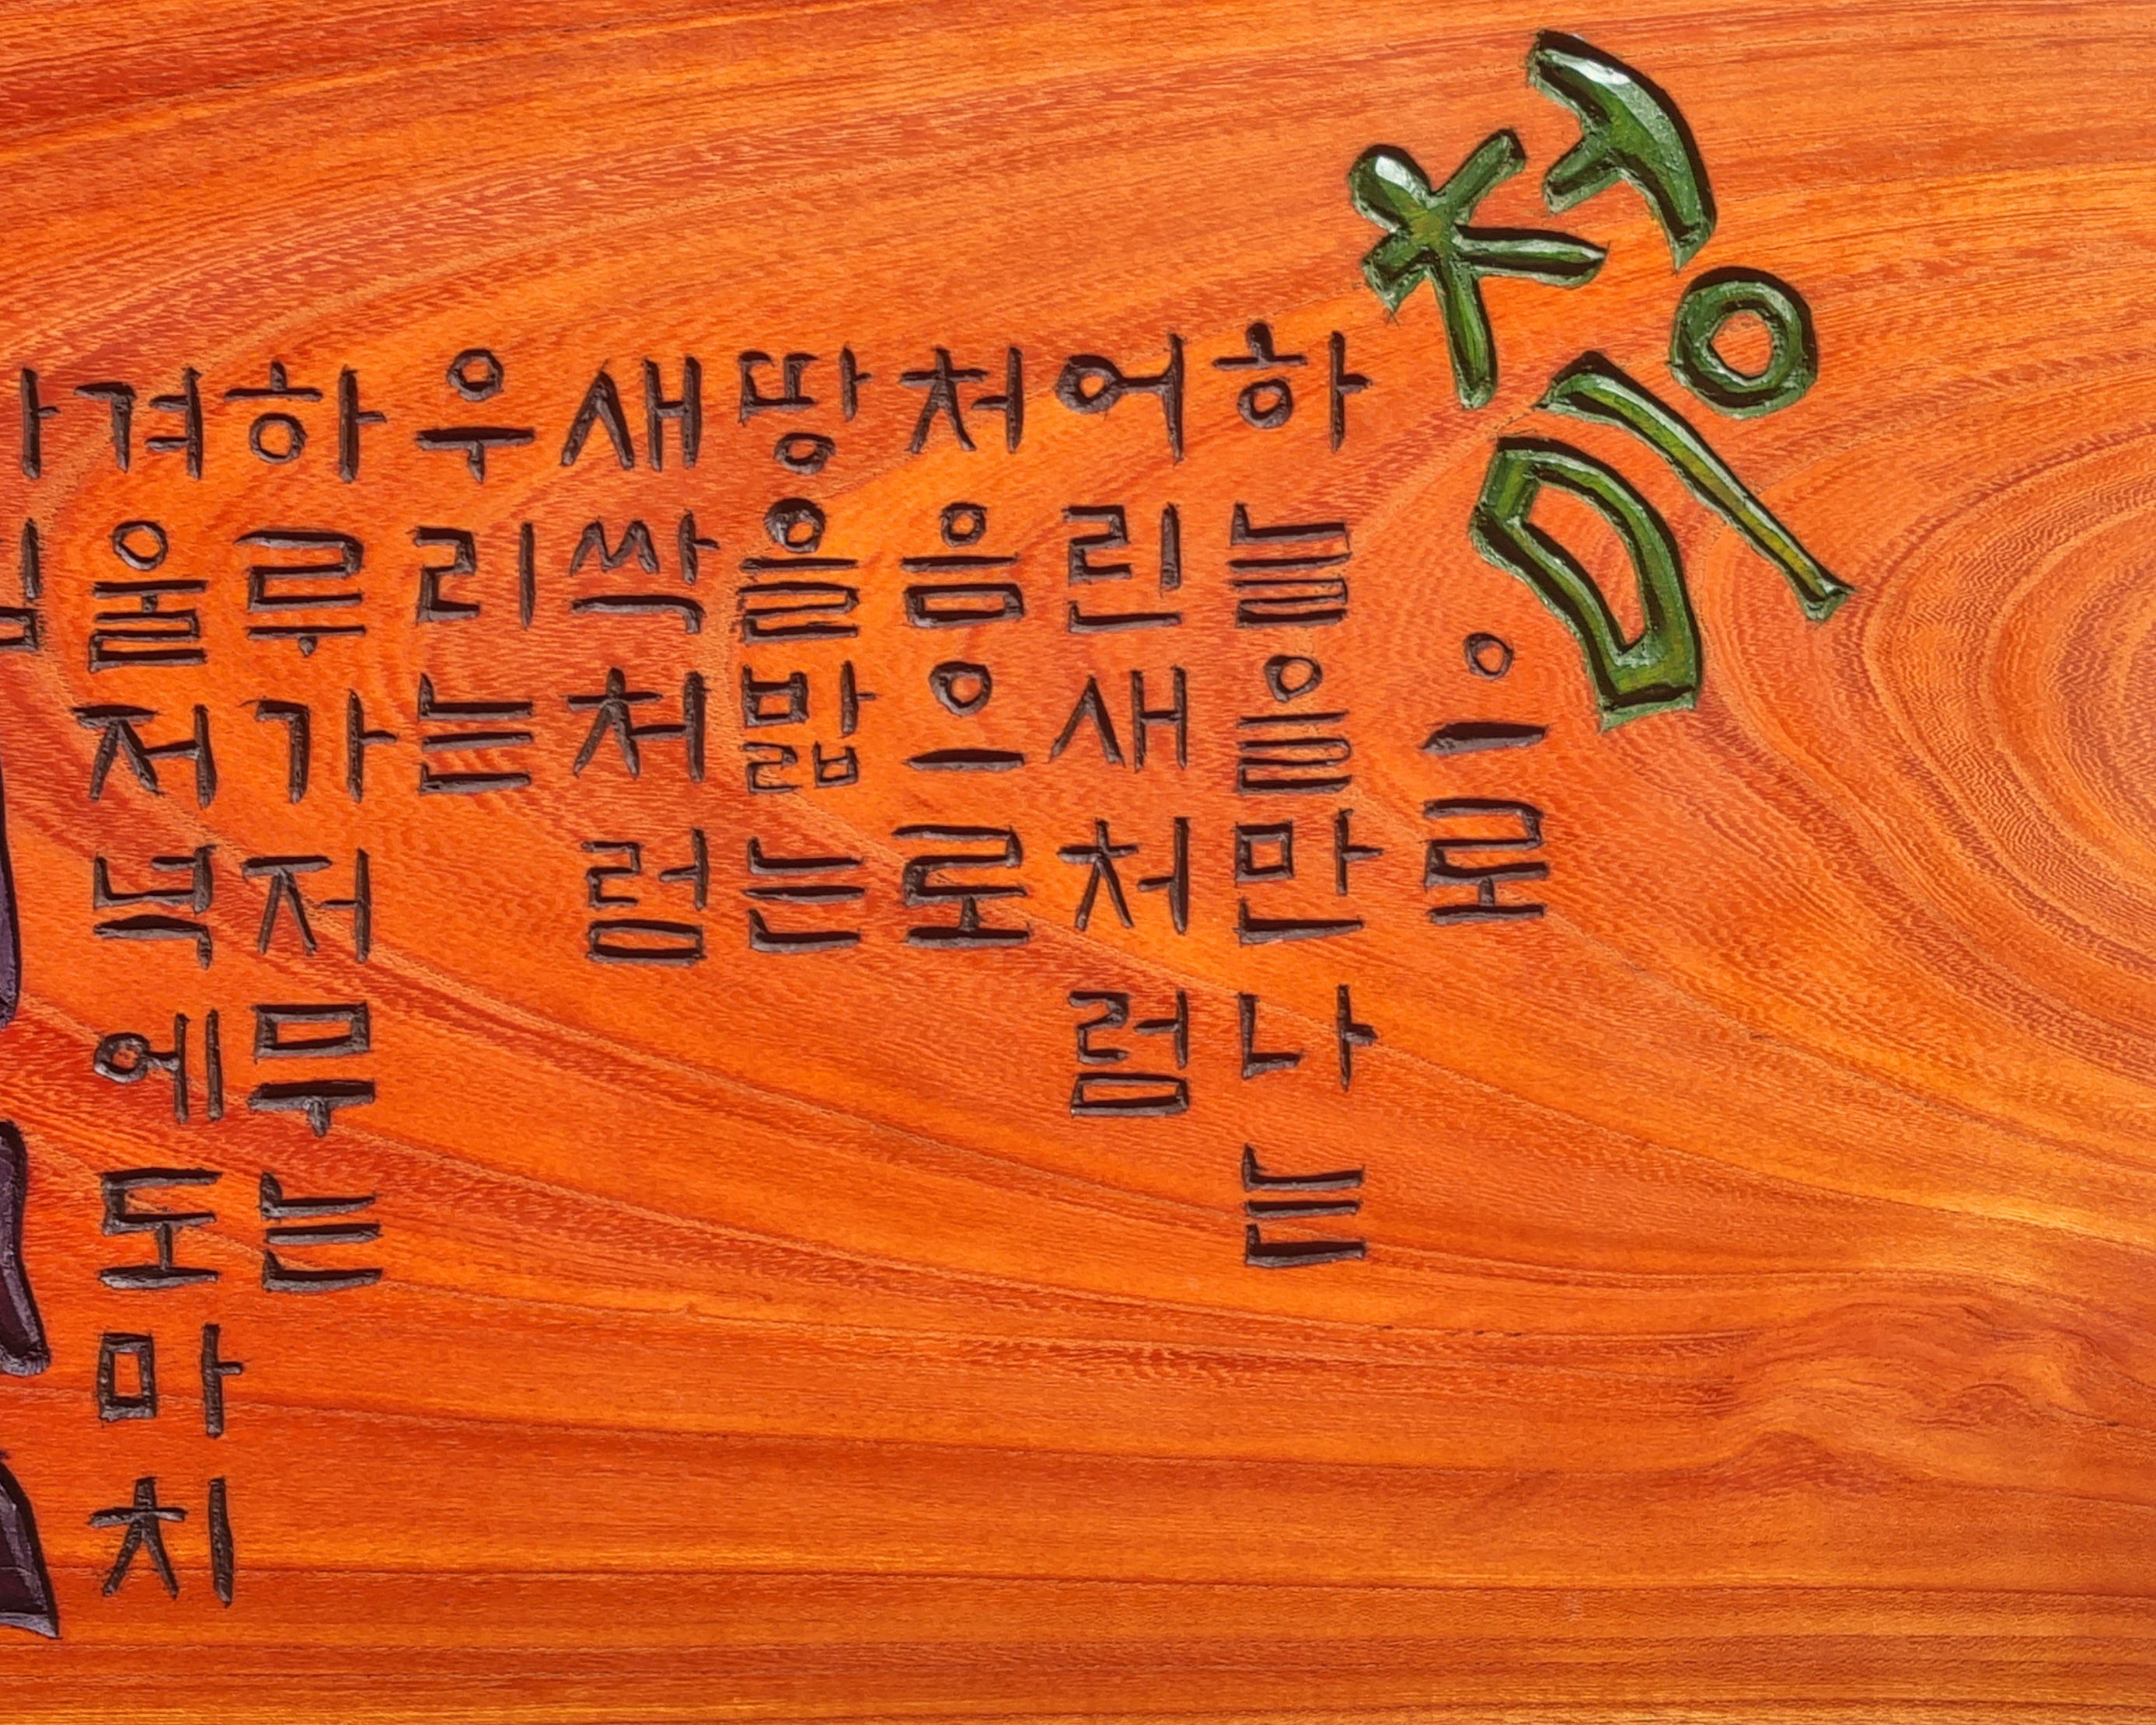 처음
으로
하늘을만나는
어린새처럼
처음으로
땅을밟는
새싹처럼
우리는
하루가저무는
겨울저녁에도마치